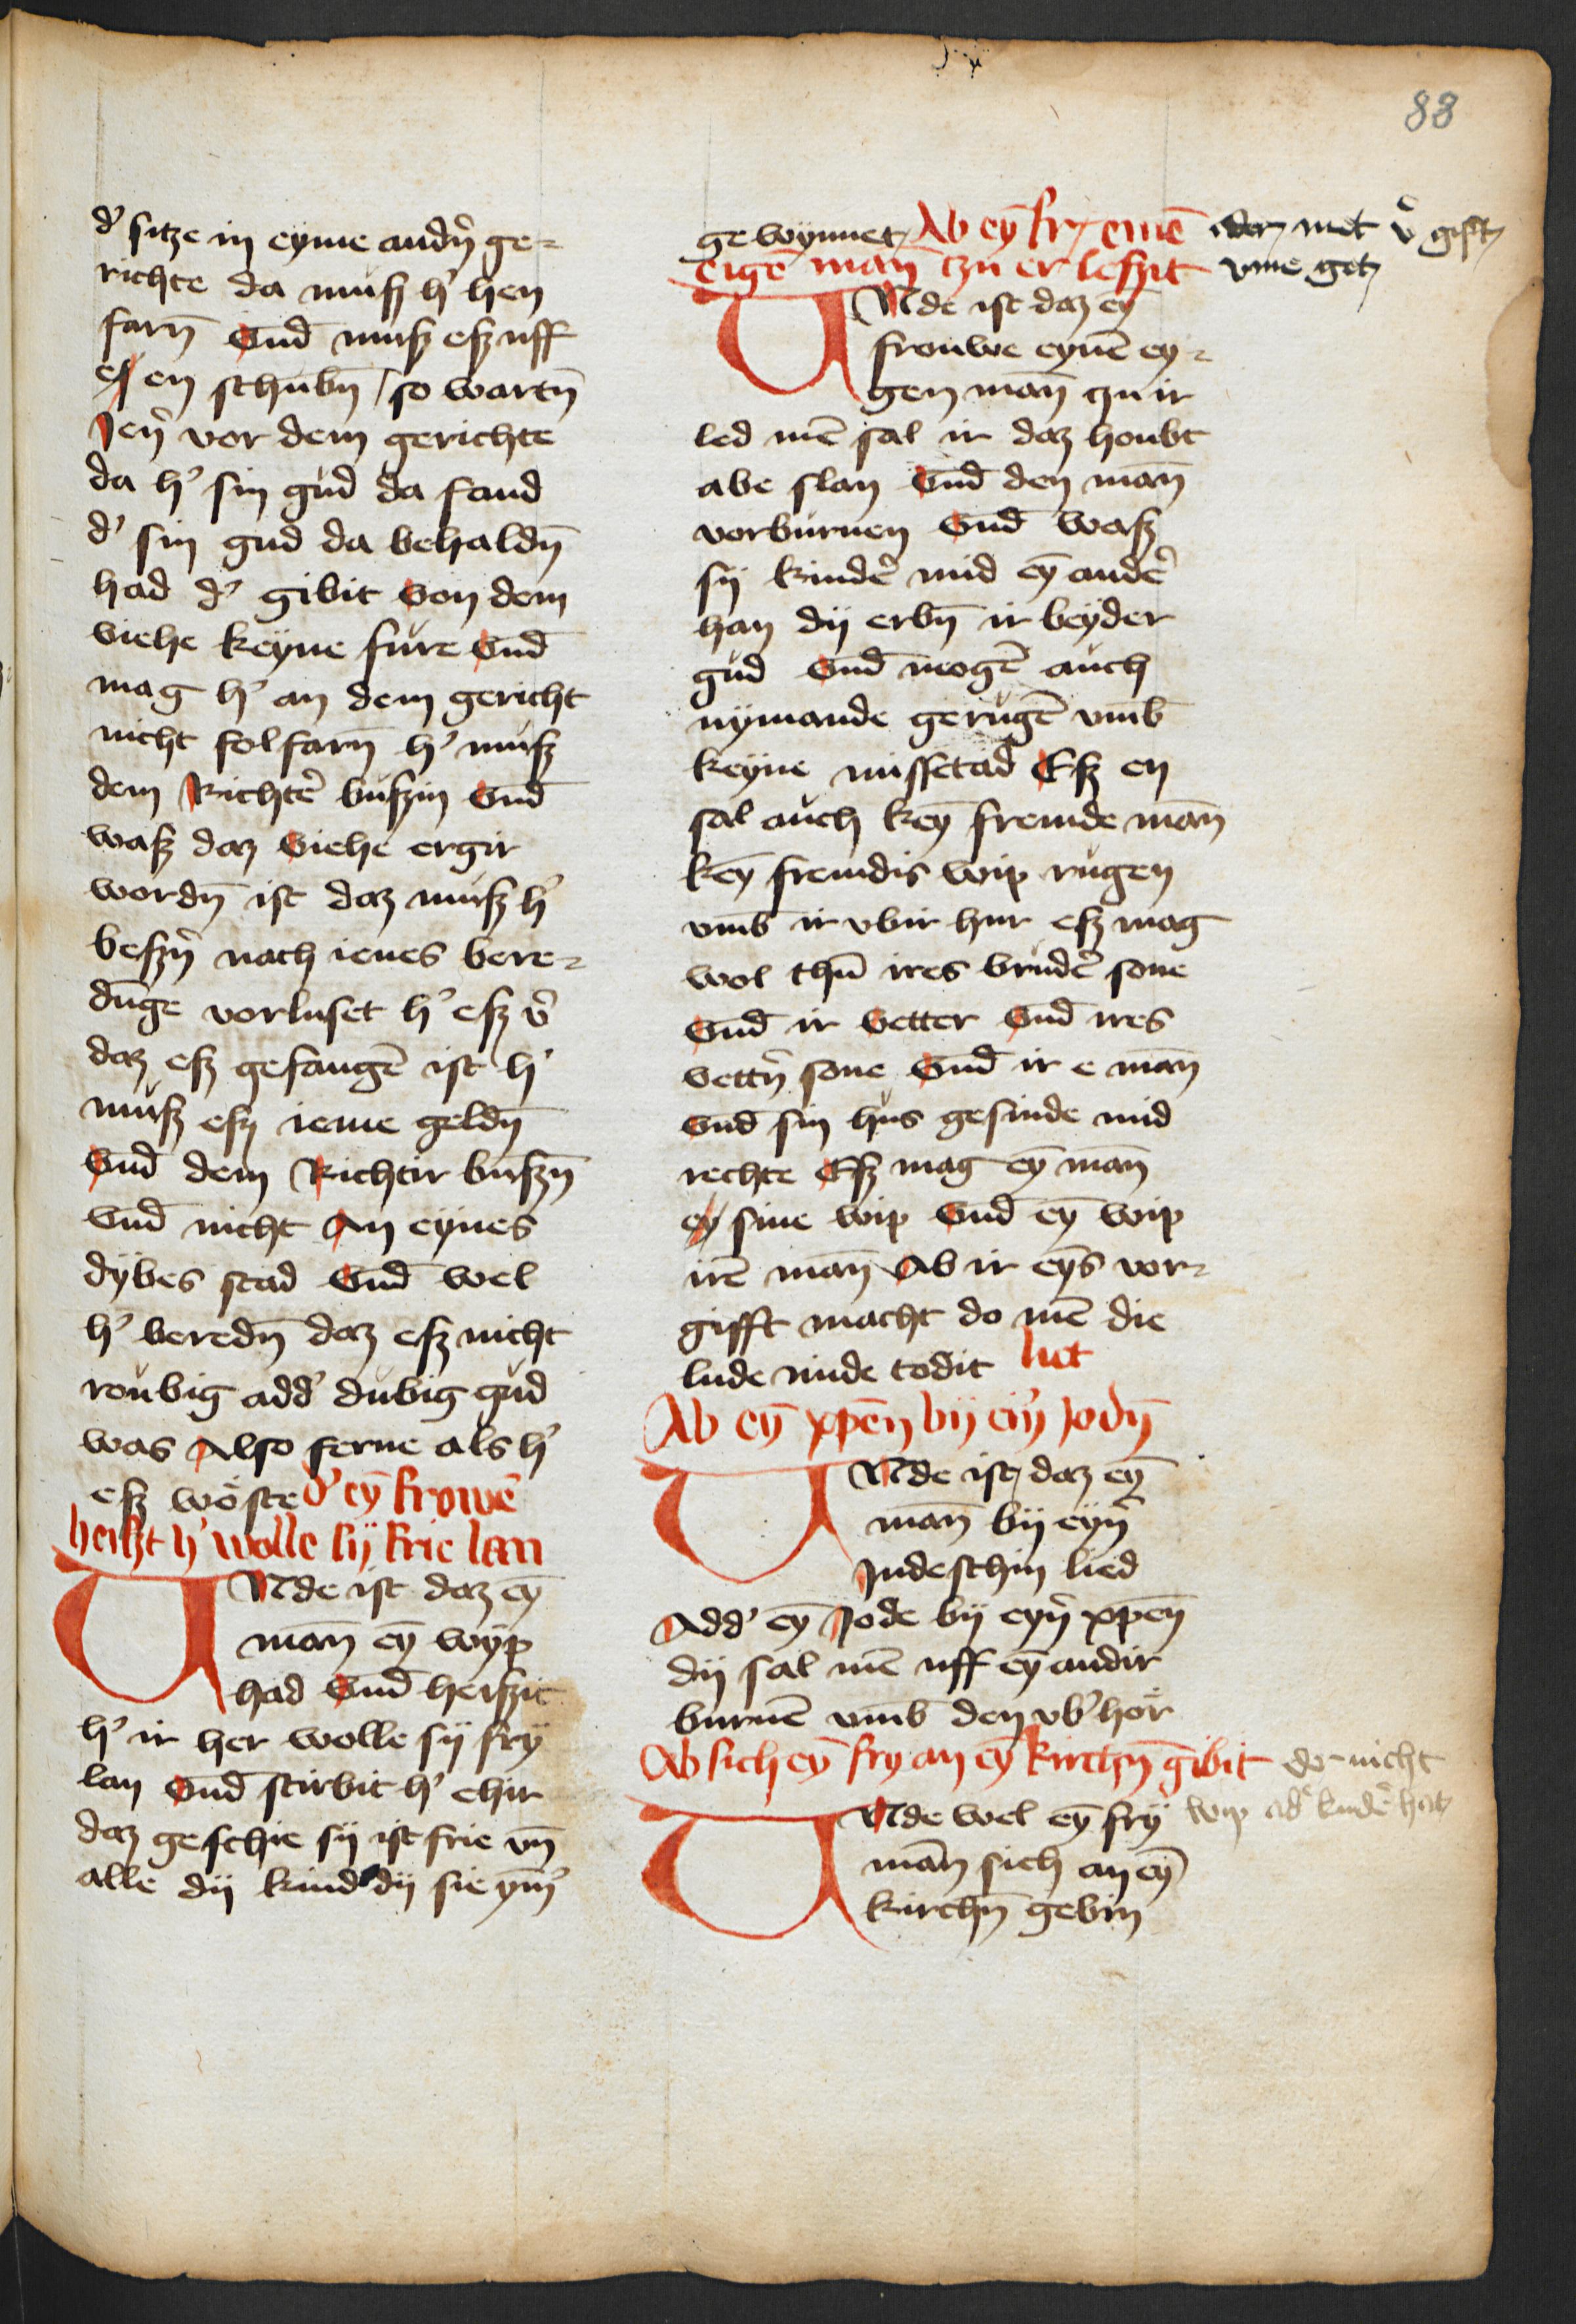 88
d' sitze in eyme andn̄ ge-
richte da muͦsz h' hen
farn̄ vnd̄ muͦsz esz uff
es en schubn̄ / so wartn̄
Jen̄ vor dem gerichte
da h' sin gud da fand
d' sin gud da behaldn̄
had d' gibit von dem
viehe keyne fure vnd̄
mag h' an dem gericht
nicht folfarn̄ h' muͦsz
dem Richter̄ buͦszin vnd̄
wasz daz viehe ergir
wordn̄ ist daz muͦsz h'
beszn̄ nach ienes bere-
dūge vorluset h' esz v̄
daz esz gefangē ist h'
muͦsz esz ieme geldn̄
vnd̄ dem Richtir buszn̄
vnd̄ nicht An eynes
dybes stad vnd̄ wel
h' beredn̄ daz esz nicht
roubig add' dubig gud
was Also ferne als h'
esz woͤste d' ey̅ frowē
heiszt h' wolle sij frie lan
VNde ist daz ey̅
man̄ ey̅ wyp
had vnd̄ heiszit
h' ir her wolle sij fry
lan vnd̄ stirbit h' ehir
daz geschie sij ist frie vn̄
alle dij kind dij sie ym'
gewynnet Ab ey̅ fr emē
eigē man̄ czu er leszit
met v̄ gift
vme get
VNde ist daz ey̅
frouwe eynē ey-
gen man̄ czu ir
led mē sal ir daz houbt
abe slan vnd̄ den man̄
vorburnen vnd̄ wasz
sij kinder̄ mid ey̅ ander̄
han dij erbn̄ ir beyder
gud vnd̄ mogē auch
nymande gerugē vmb̄
keyne missetad Esz en
sal auch key̅ fremde man̄
key̅ fremdis wip rugen
vmb̄ ir vbir hur esz mag
wol thū ires bruder̄ sone
vnd̄ ir vetter vnd̄ ires
vettn̄ sone vnd̄ ir e man̄
vnd̄ sin hus gesinde mid
rechte Esz mag ey̅ man̄
ey sine wip vnd̄ ey̅ wip
irē man̄ Ab ir ey̅s vor-
gifft macht do mē die
lude mide todit liet
Ab ey̅ xpen̄ bij ein' Jodn̄
VNde ist daz ey̅
man̄ bij eyn̄
Judeschin lied
Add' ey̅ Jode bij eyn̄ xpen̄
dij sal mē uff ey̅ andir
burnē vmb̄ den vb'hor
Ab sich ey̅ fry an ey̅ kirchn̄ gibit der nicht
wip ad' kinder̄ hat
VNde wel ey̅ fry
man̄ sich an ey̅
kirchn̄ gebin